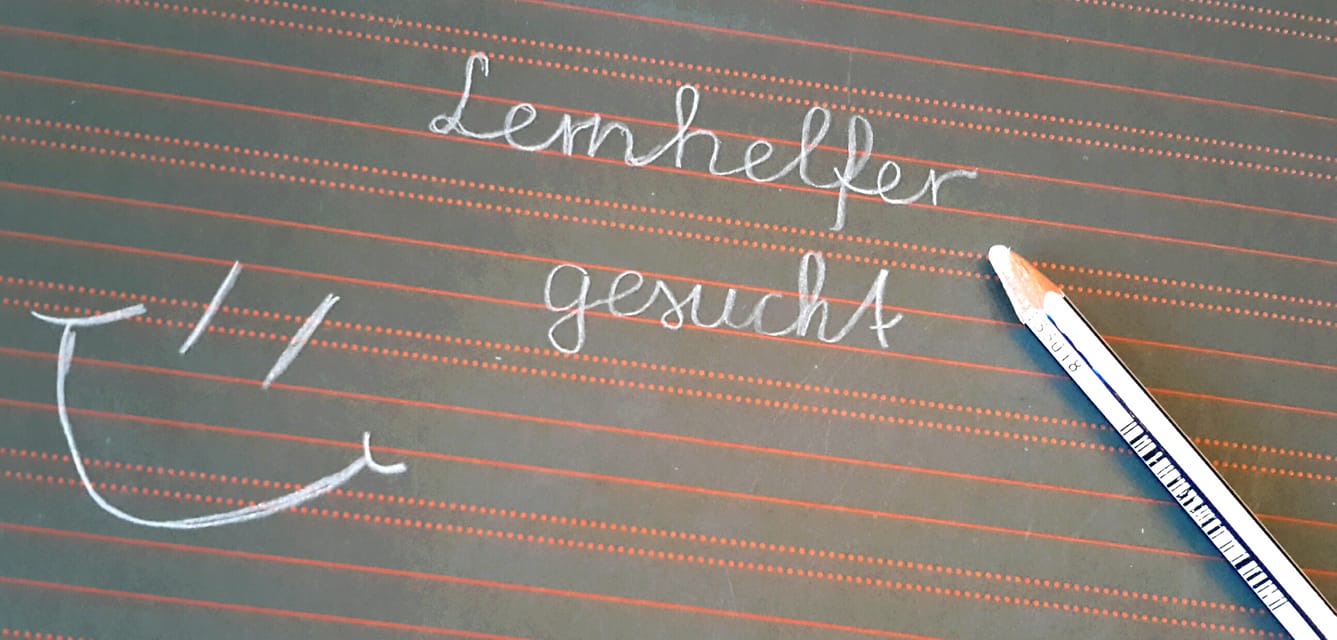 Lernhelfer
gesucht